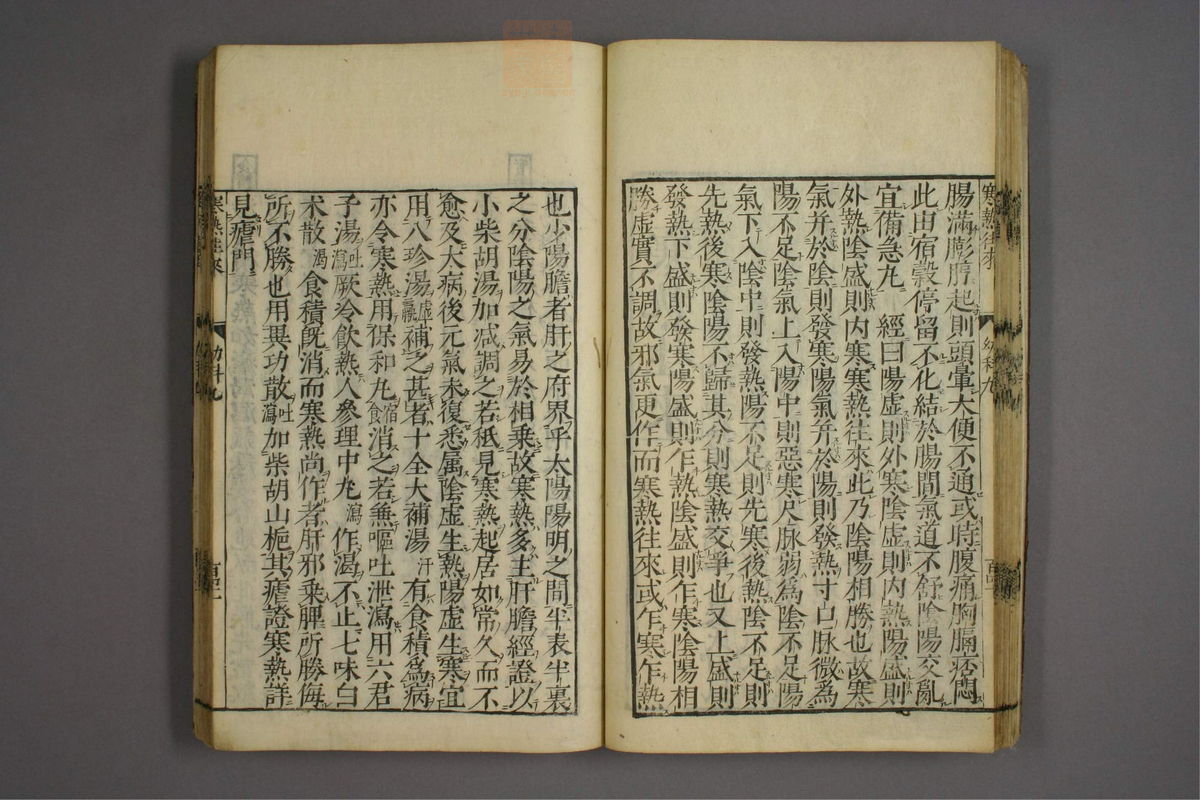 寒熱往來 幼科九
腸滿膨脝起則頭暈大便不通或時腹痛胸膈痞悶
此由宿穀停留不化結於腸間氣道不舒陰陽交亂
宜備急九 經曰陽虛則外寒陰虛則内熱陽盛則
外熱陰盛則内寒寒熱往來此乃陰陽相勝也故寒
氣并於陰則發寒陽氣并於陽則發熱寸口脉微為
陽不足陰氣上入陽中則惡寒尺脉弱為陰不足陽
氣下入陰中則發熱陽不足則先寒後熱陰不足則
先熱後寒陰陽不歸其分則寒熱交爭也又上盛則
發熱下盛則發寒陽盛則乍熱陰盛則乍寒陰陽相
勝虛實不調故邪氣更作而寒熱往來或乍寒乍熱
也少陽膽者肝之府界乎太陽陽明之間半表半裏
之分陰陽之氣易於相乗故寒熱多主肝膽經證以
小柴胡湯加减調之若秪見寒熱起居如常久而不
愈及大病後元氣未復悉属陰虛生熱陽虛生寒宜
用八珍湯虛羸補之甚者十全大補湯汗有食積為病
亦令寒熱用保和九宿食消之若兼嘔吐泄瀉用六君
子湯吐瀉厥冷飲熱人參理中九瀉作渴不止七味白
术散渴食積旣消而寒熱尚作者肝邪乗脾所勝侮
所不勝也用異功散吐瀉加柴胡山梔其瘧證寒熱詳
見瘧門
寒熱往來 幼科九